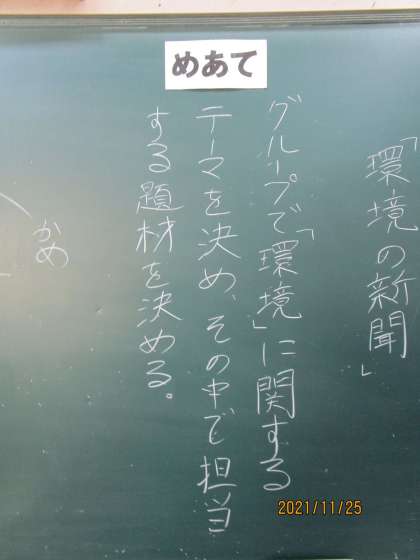 「環境の新聞」
めあて
グループで「環境」に関する
テーマを決め、その中で担当
する題材を決める。
かめ
2021/11/25